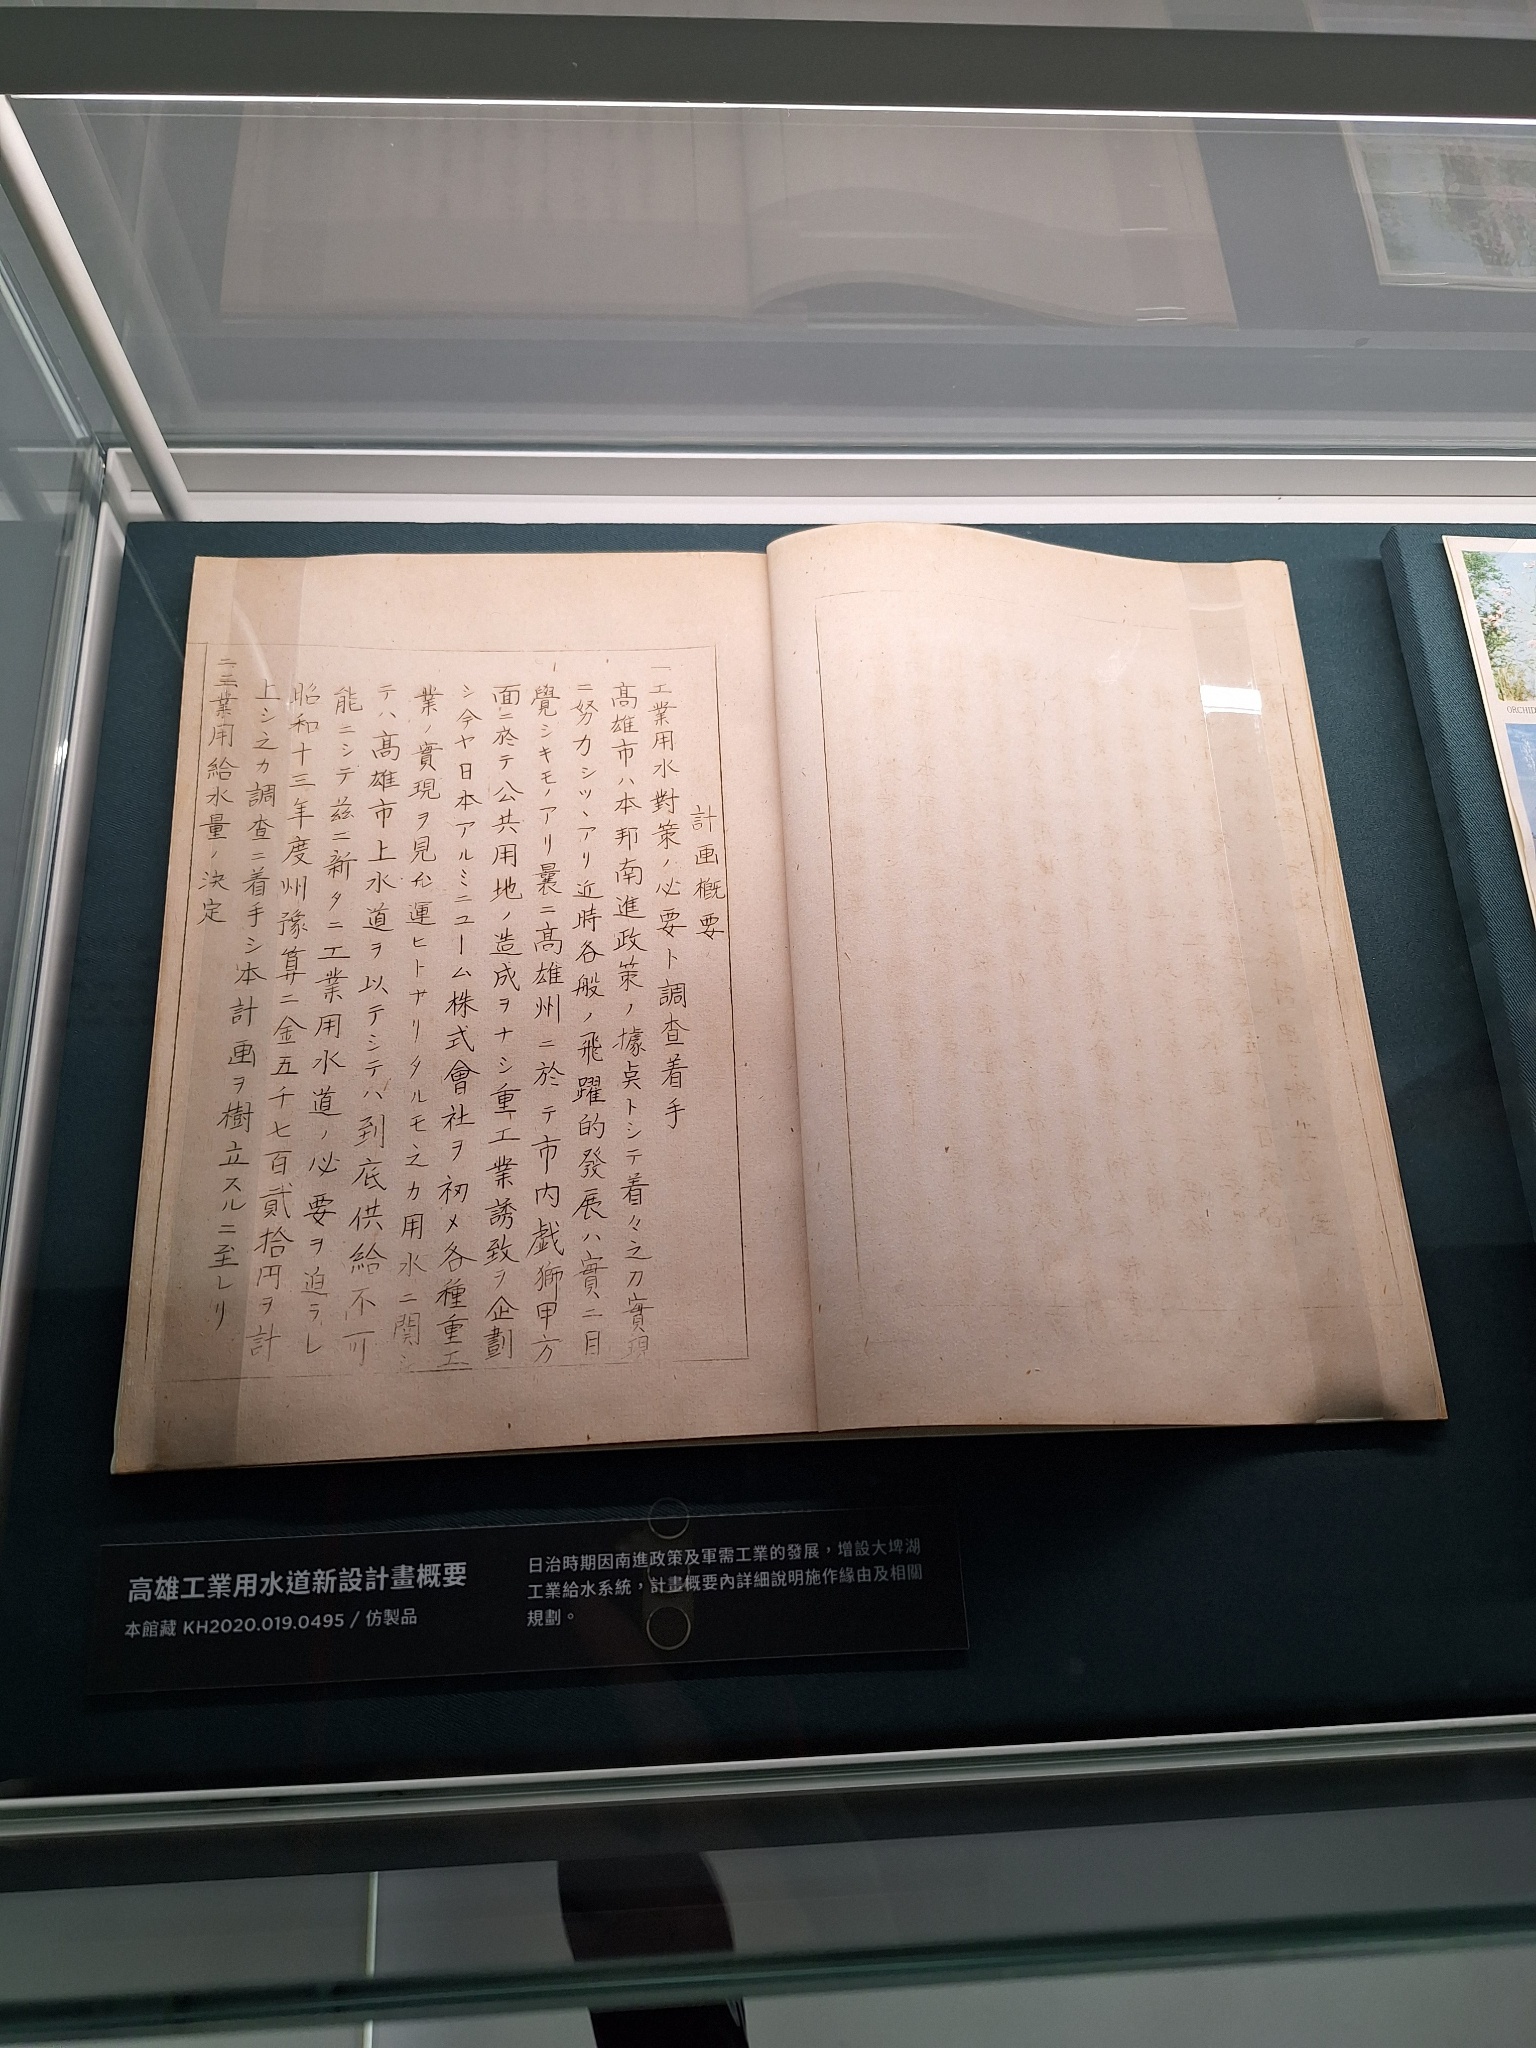 計画概要
一工業用水對策ノ必要ト調査着手
高雄市ハ本邦南進政策ノ據点トシテ着々之カ實現
ニ努力シツヽアリ近時各般ノ飛躍的發展ハ實ニ目
覺シキモノアリ曩ニ高雄州ニ於テ市内戯獅甲方
面ニ於テ公共用地ノ造成ヲナシ重工業誘致ヲ企劃
シ今ヤ日本アルミニユーム株式會社ヲ初メ各種重工
業ノ實現ヲ見ル運ヒトナリタルモ之カ用水ニ関シ
テハ高雄市上水道ヲ以テシテハ到底供給不可
能ニシテ茲ニ新タニ工業用水道ノ必要ヲ迫ラレ
昭和十三年度州豫算ニ金五千七百貳拾円ヲ計
上シ之カ調査ニ着手シ本計画ヲ樹立スルニ至レリ
二工業用給水量ノ決定
高雄工業用水道新設計畫概要
本館藏 KH2020.019.0495 / 仿製品
日治時期因南進政策及軍需工業的發展，增設大埤湖
工業給水系統，計畫概要內詳細說明施作緣由及相關
規劃。
ORCHID